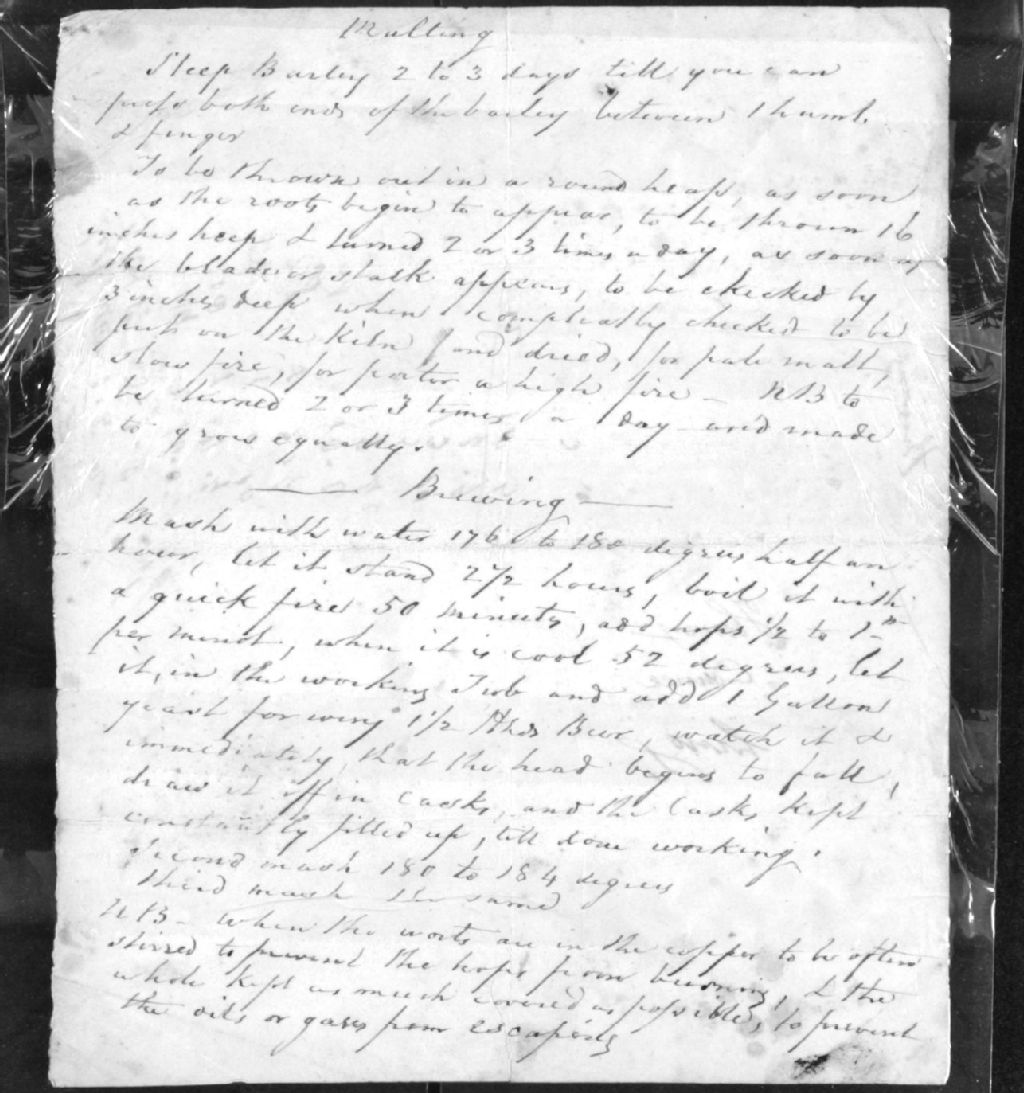 Malting
Steep Barley 2 to 3 days till you can
press both ends of the barley between thumb
& finger
To be thrown out in a round heap, as soon
as the roots begin to appear, to be thrown 16
inches keep & turned 2 or 3 times a day, as soon as
the blade or stalk appears, to be checked by
3 inches deep when compleatly checked to be
put on the Kiln and dried, for pale malt,
slow fire, for porter a high fire - NB to
be turned 2 or 3 times a day and made
to grow equally.
Brewing
Mash with water 176 to 180 degrees half an
hour, let it stand 2 1/2 hours, boil it with
a quick fire 50 minutes, add hops 1/2 to 1
per minot, when it is cool 52 degrees, let
it, in the working Tub and add 1 Gallon
yeast for every 1 1/2 Hhds Beer, watch it &
immediately that the head begins to fall,
draw it off in Casks, and the Casks kept
constantly filled up, till done working.
Second mash 180 to 184 degrees
third mash the same
NB - when the worts are in the copper to be often
stirred to prevent the hops from burning, & the
whole kept as much covered as possible, to prevent
the oils or gases from escaping